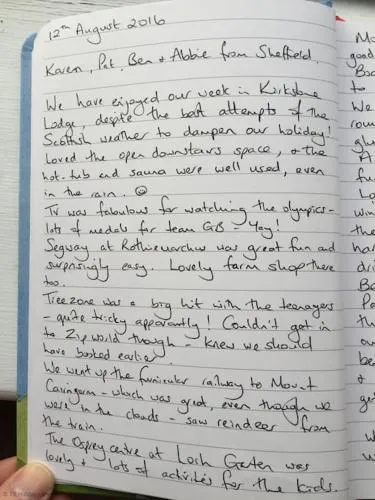 12th August 2016
Karen, Pat, Ben & Abbie from Sheffield.
We have enjoyed our week in Kirkstone
Lodge, despite the best attempts of the
Scottish weather to dampen our holiday!
Loved the open downstairs space, & the
hot-tub and sauna were well used, even
in the rain. ☺
TV was fabulous for watching the olympics -
lots of medals for team GB - Yay!
Segway at Rothiemurchus was great fun and
surprisingly easy. Lovely farm shop there
too.
Treezone was a big hit with the teenagers
- quite tricky apparantly! Couldn't get in
to Zip world though - knew we should
have booked earlier.
We went up the funicular railway to Mount
Cairngorm - which was great, even though we
were in the clouds - saw reindeer from
the train.
The Osprey centre at Loch Garten was
lovely & lots of activities for the kids.